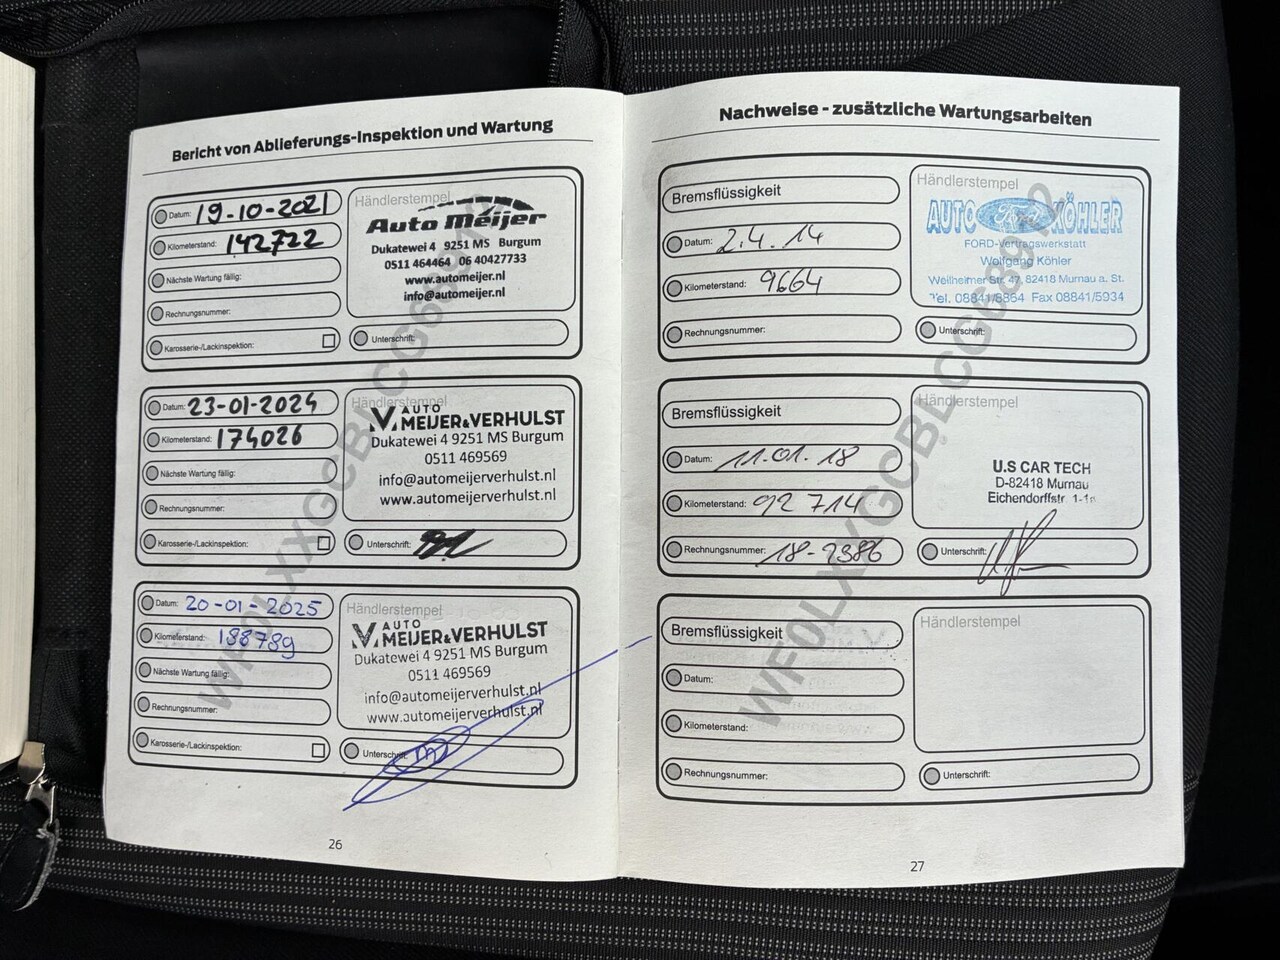 Bericht von Ablieferungs-Inspektion und Wartung
Datum: 19-10-2021
Kilometerstand: 142722
Nächste Wartung fällig:
Rechnungsnummer:
Karosserie-/Lackinspektion:
Händlerstempel
Auto Meijer
Dukatewei 4 9251 MS Burgum
0511 464464 06 40427733
www.automeijer.nl
info@automeijer.nl
Unterschrift:
Datum: 23-01-2024
Kilometerstand: 174026
Nächste Wartung fällig:
Rechnungsnummer:
Karosserie-/Lackinspektion:
Händlerstempel
AUTO
MEIJER&VERHULST
Dukatewei 4 9251 MS Burgum
0511 469569
info@automeijerverhulst.nl
www.automeijerverhulst.nl
Unterschrift:
Datum: 20-01-2025
Kilometerstand: 188789
Nächste Wartung fällig:
Rechnungsnummer:
Karosserie-/Lackinspektion:
Händlerstempel
AUTO
MEIJER&VERHULST
Dukatewei 4 9251 MS Burgum
0511 469569
info@automeijerverhulst.nl
www.automeijerverhulst.nl
Unterschrift:
26
Nachweise - zusätzliche Wartungsarbeiten
Bremsflüssigkeit
Datum: 2.4.14
Kilometerstand: 9664
Rechnungsnummer:
Händlerstempel
AUTO Ford KÖHLER
FORD-Vertragswerkstatt
Wolfgang Köhler
Weilheimer Str. 47, 82418 Murnau a. St.
Tel. 08841/5364 Fax 08841/5934
Unterschrift:
Bremsflüssigkeit
Datum: 11.01.18
Kilometerstand: 92 714
Rechnungsnummer: 18-2386
Händlerstempel
U.S CAR TECH
D-82418 Murnau
Eichendorffstr.
Unterschrift:
Bremsflüssigkeit
Datum:
Kilometerstand:
Rechnungsnummer:
Händlerstempel
Unterschrift:
27